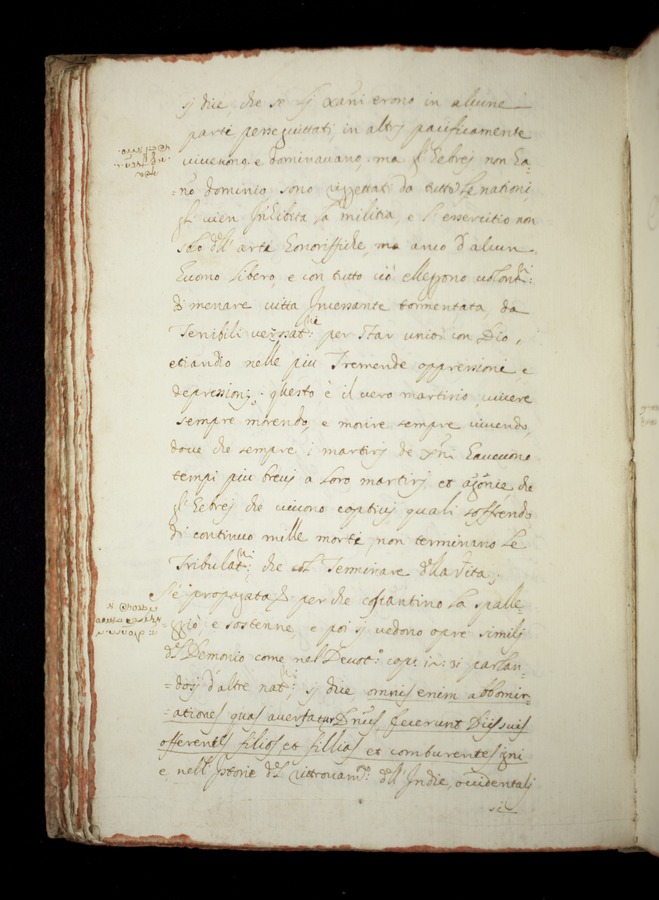 sj dice, che se lj xani erono in alcune
parti perseguittati, in altrj pacificamente
vivevono e dominavano, ma gl' Eebrej non Ea-
=no dominio sono riggettati da tutte le nationi,
gl vien Inibita la militia, e l' essercitio non
solo dell' arti Eonorifficke, ma anco d' alcun
Euomo libero, e con tutto ciò eleggono volont.ri
di menare vitta Incessante tormentata, da
Teribili vessat.ni per star uniti con Dio,
etiandio nelle piu Tremende oppressioni, e
depressionj, questo è il vero martirio, vivere
sempre morendo, e morire sempre vivendo,
dove che sempre i martirj de xni Eavevono
tempi piu brevj a loro martirj, et agonie, che
gl' Eebrej che vivono captivj, quali soffrendo
di continuo mille morti, non terminano le
Tribulat.ni, che col Terminare della Vita,
Sè propagata per che costantino la spalle-
=ggiò e sostenne, e poi sj vedono opre similj
del Demonio come nel Devot.o cap. in: si parlan-
=dosj d' altre nat.ni, sj dice omnis enim abbomin-
=ationes quas avertatur Dnus, fecerunt Diis suis
offerentes filios et fillias et comburentes igni
e, nell' Istorie del rittrovam.to dell' Indie, occidentalj
si